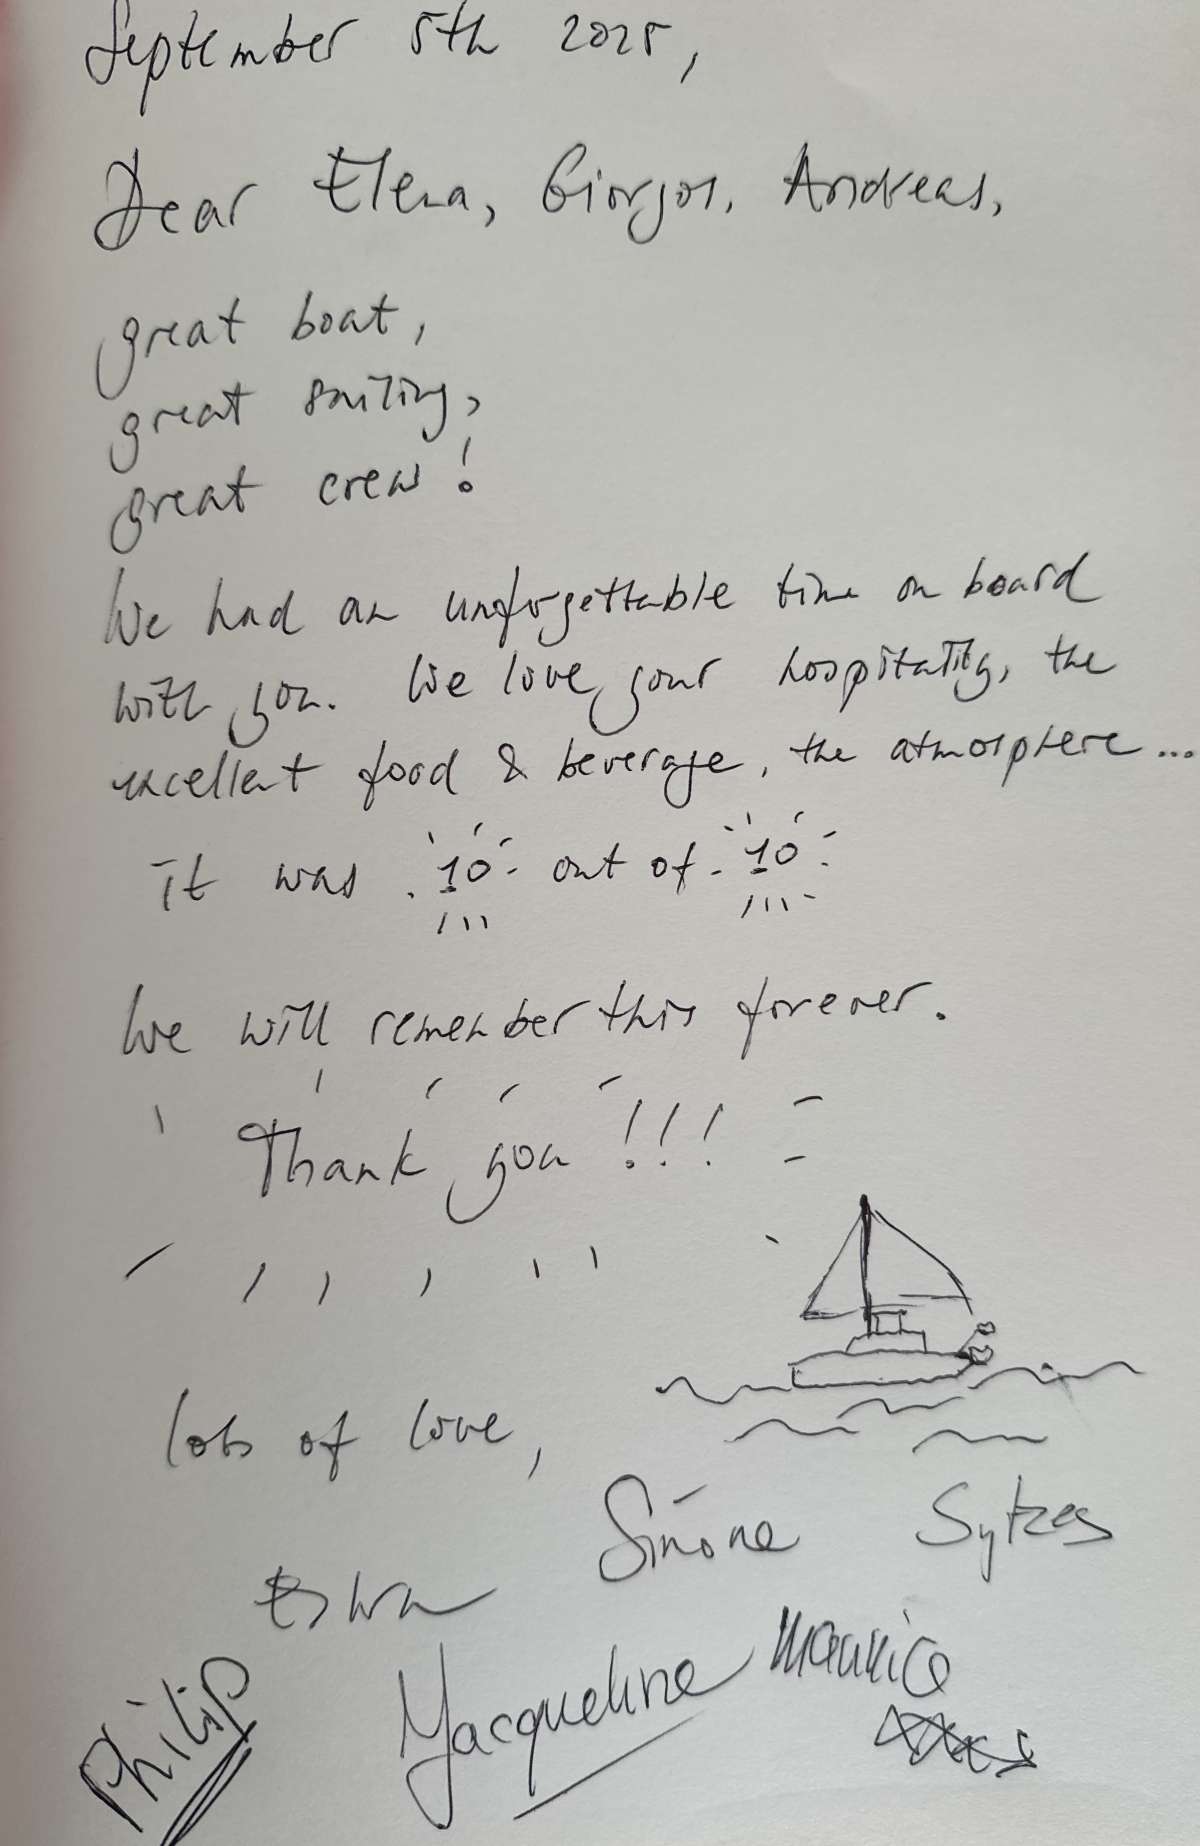 September 5th 2025,
Dear Elena, Giorgos, Andreas,
great boat,
great sailing,
great crew!
We had an unforgettable time on board
with you. We love your hospitality, the
excellent food & beverage, the atmosphere...
it was 10 out of 10
We will remember this forever.
Thank you!!!
lots of love,
Simone Sytzes
Philip Jacqueline Maurice